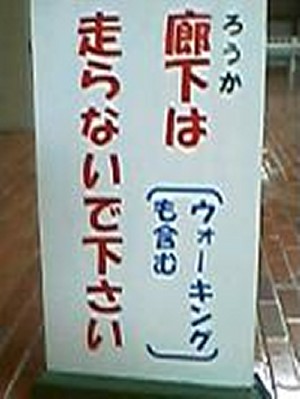 ろうか
廊下は
(ウォーキング
も含む)
走らないで下さい